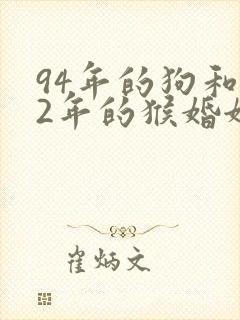 94年的狗和
2年的猴婚姻
崔炳文